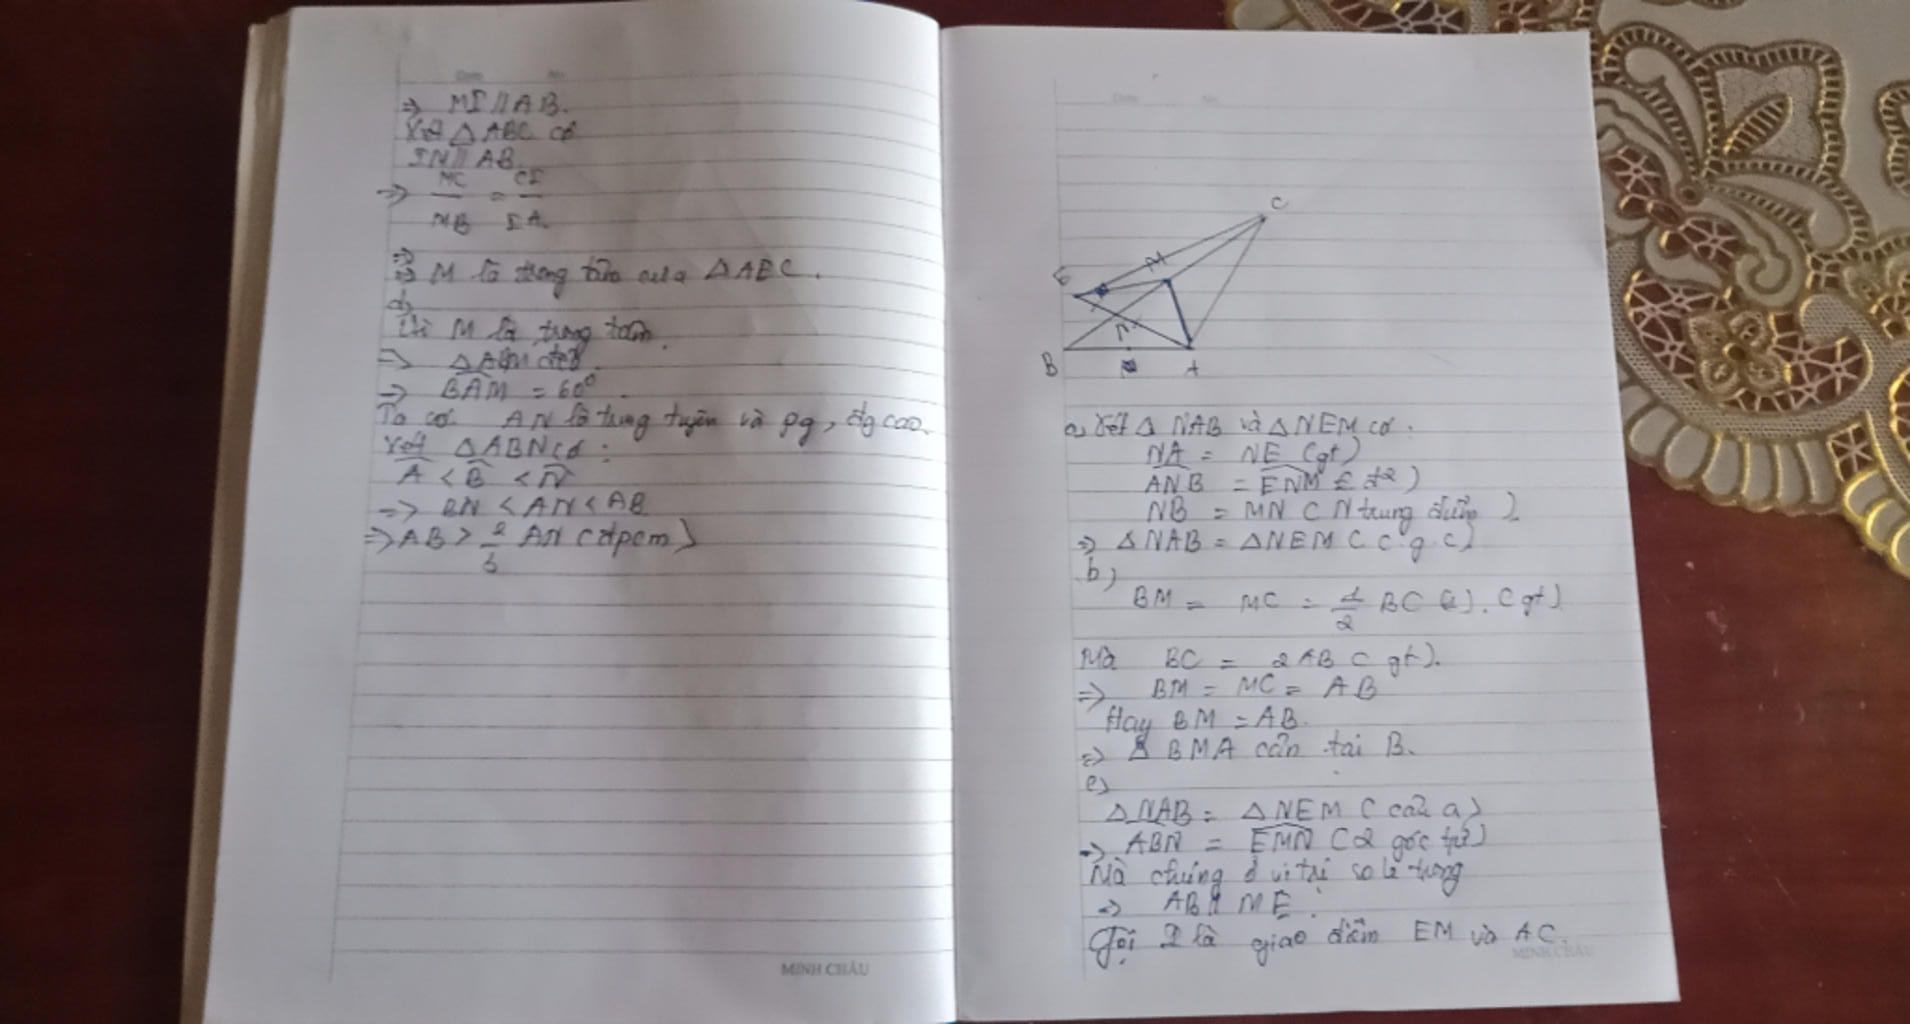 ⇒ MI // AB.
Xét △ ABC có
IN // AB.
⇒ MC/MB = CI/IA.
⇒
⇒ M là trọng tâm của △ AEC.
d)
Vì M là trọng tâm.
⇒ △ ABM đều.
⇒ BAM = 60°.
Ta có AN là trung tuyến và pg, đg cao.
Xét △ABN có:
A < B < N
⇒ BN < AN < AB
⇒ AB > 2/3 AN (đpcm)
MINH CHÂU
C
M
E
N
B
A
a, Xét △ NAB và △NEM có.
NA = NE (gt)
ANB = ENM (đ2)
NB = MN ( N trung điểm )
⇒ △NAB = △NEM ( c.g.c)
b)
BM = MC = 1/2 BC (1). ( gt)
Mà BC = 2AB ( gt).
⇒ BM = MC = AB
Hay BM = AB.
⇒ △ BMA cân tại B.
c)
△NAB = △NEM ( câu a)
⇒ ABN = EMN (2 góc tứ)
Mà chúng ở vị trí so le trong
⇒ AB // ME.
Gọi I là giao điểm EM và AC.
MINH CHÂU